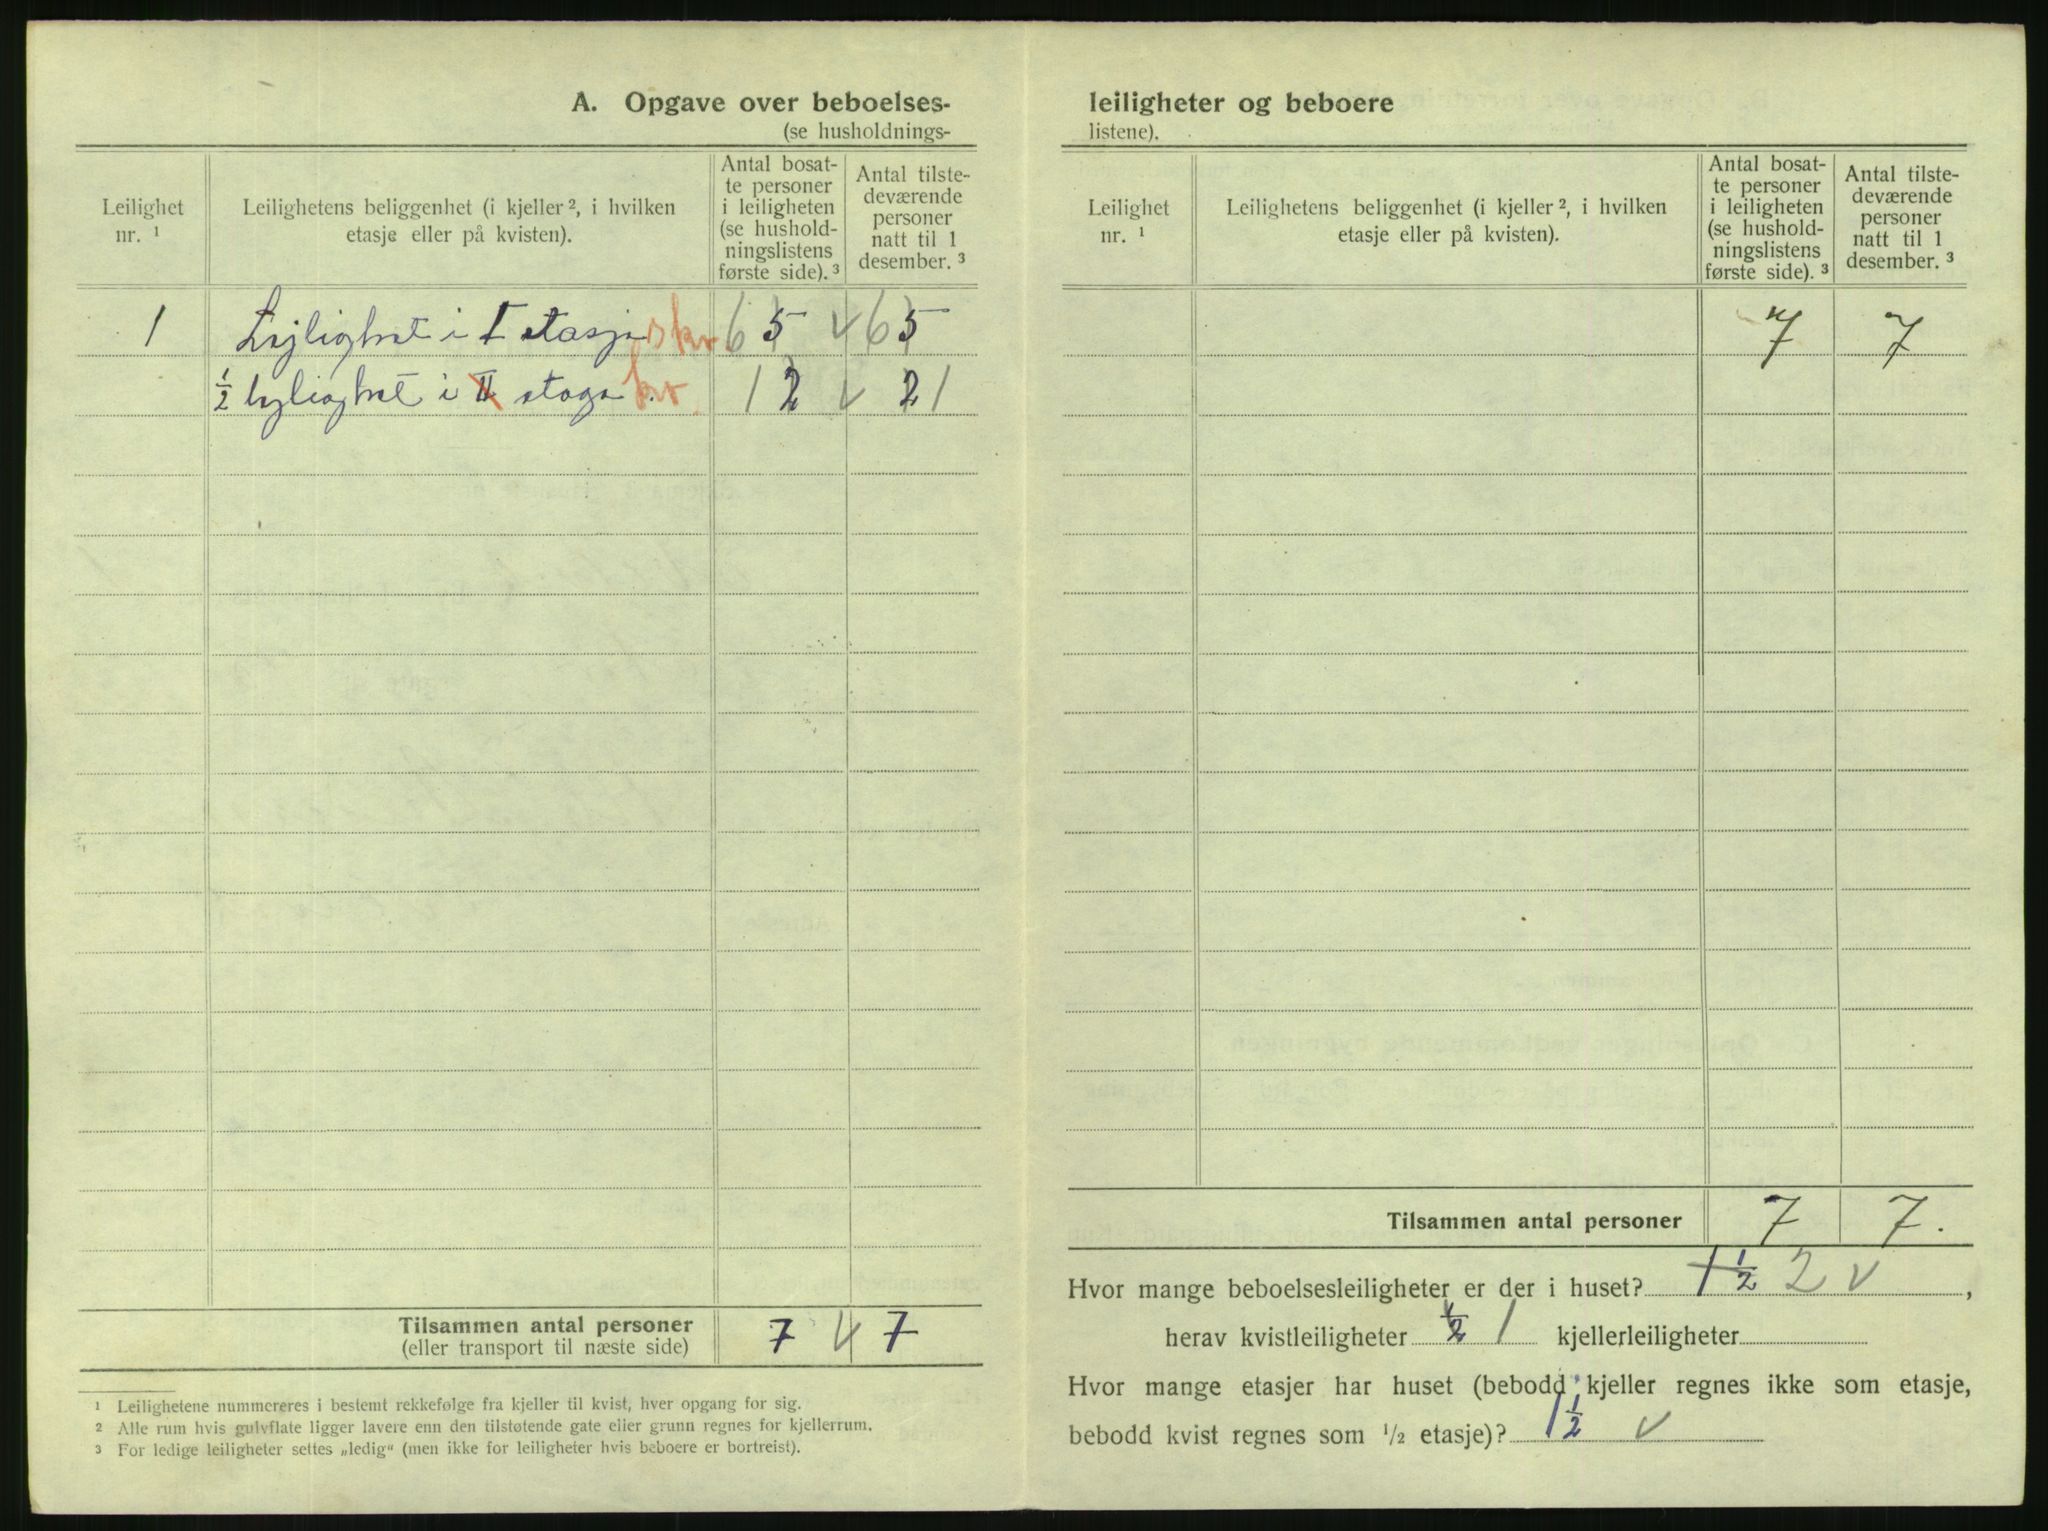 A. Opgave over beboelses-
(se husholdnings-
Leilighet nr. ¹
Leilighetens beliggenhet (i kjeller ², i hvilken etasje eller på kvisten).
Antal bosat-te personer i leiligheten (se hushold-ningslistens første side). ³
Antal tilste-deværende personer natt til 1 desember. ³
1 Lejlighet i I etasje 6 5 v 6 5
½ lejlighet i II etage kv. 1 2 v 2 1
Tilsammen antal personer 7 v 7
(eller transport til næste side)
¹ Leilighetene nummereres i bestemt rekkefølge fra kjeller til kvist, hver opgang for sig.
² Alle rum hvis gulvflate ligger lavere enn den tilstøtende gate eller grunn regnes for kjellerrum.
³ For ledige leiligheter settes „ledig“ (men ikke for leiligheter hvis beboere er bortreist).
leiligheter og beboere
listene).
Leilighet nr. ¹
Leilighetens beliggenhet (i kjeller ², i hvilken etasje eller på kvisten).
Antal bosat-te personer i leiligheten (se hushold-ningslistens første side). ³
Antal tilste-deværende personer natt til 1 desember. ³
7 7
Tilsammen antal personer 7 7.
Hvor mange beboelsesleiligheter er der i huset? 1½ 2 v,
herav kvistleiligheter ½ 1 kjellerleiligheter
Hvor mange etasjer har huset (bebodd kjeller regnes ikke som etasje,
bebodd kvist regnes som ½ etasje)? 1½ v